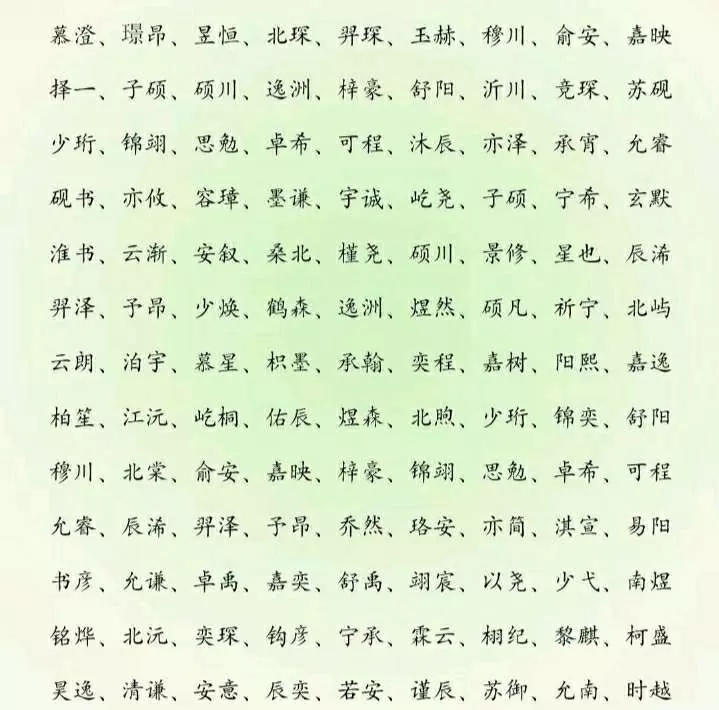 慕澄、璟昂、昱恒、北琛、羿琛、玉赫、穆川、俞安、嘉映
择一、子硕、硕川、逸洲、梓豪、舒阳、沂川、竞琛、苏砚
少珩、锦翊、思勉、卓希、可程、沐辰、亦泽、承宵、允睿
砚书、亦攸、容璋、墨谦、宇诚、屹尧、子硕、宁希、玄默
淮书、云渐、安叙、桑北、槿尧、硕川、景修、星也、辰浠
羿泽、予昂、少焕、鹤森、逸洲、煜然、硕凡、祈宁、北屿
云朗、泊宇、慕星、枳墨、承翰、奕程、嘉树、阳熙、嘉逸
柏笙、江沅、屹桐、佑辰、煜森、北煦、少珩、锦奕、舒阳
穆川、北棠、俞安、嘉映、梓豪、锦翊、思勉、卓希、可程
允睿、辰浠、羿泽、予昂、乔然、珞安、亦简、淇宣、易阳
书彦、允谦、卓禹、嘉奕、舒禹、翊宸、以尧、少弋、南煜
铭烨、北沅、奕琛、钧彦、宁承、霖云、栩纪、黎麒、柯盛
昊逸、清谦、安意、辰奕、若安、谨辰、苏御、允南、时越